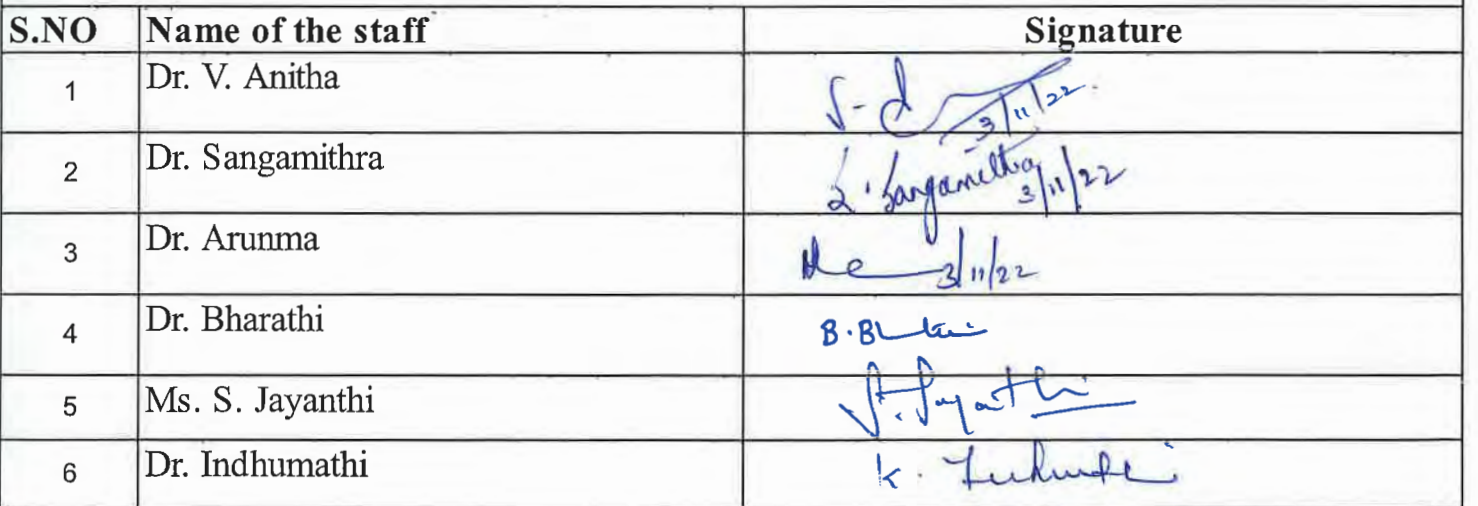 S.NO Name of the staff Signature
1 Dr. V. Anitha
3/11/22.
2 Dr. Sangamithra
S. Sangamithra 3/11/22
3 Dr. Arunma 3/11/22
4 Dr. Bharathi B.
5 Ms. S. Jayanthi Jayanthi
6 Dr. Indhumathi K.